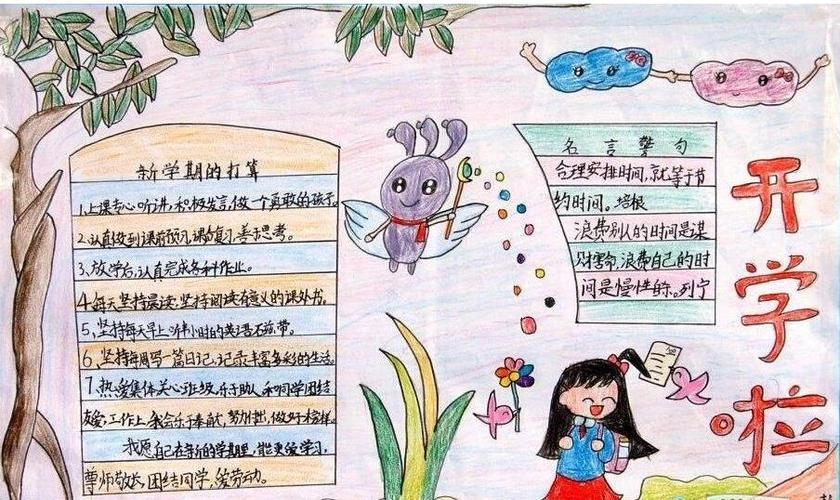 新学期的打算
1.上课专心听讲,积极发言,做一个勇敢的孩子。
2.认真做到课前预习,课后复习,善于思考。
3、放学后,认真完成各科作业。
4.每天坚持晨读,坚持阅读有意义的课外书。
5、坚持每天早上听半小时的英语磁带。
6、坚持每周写一篇日记,记录丰富多彩的生活。
7.热爱集体,关心班级,乐于助人,和同学团结
友爱,工作上,我会乐于奉献,努力付出,做好榜样。
我愿自己在新的学期里,能更爱学习,
尊师敬长,团结同学,爱劳动。
名言警句
合理安排时间,就等于节
约时间。培根
浪费别人的时间是谋
财害命,浪费自己的时
间是慢性自杀。列宁
开学啦